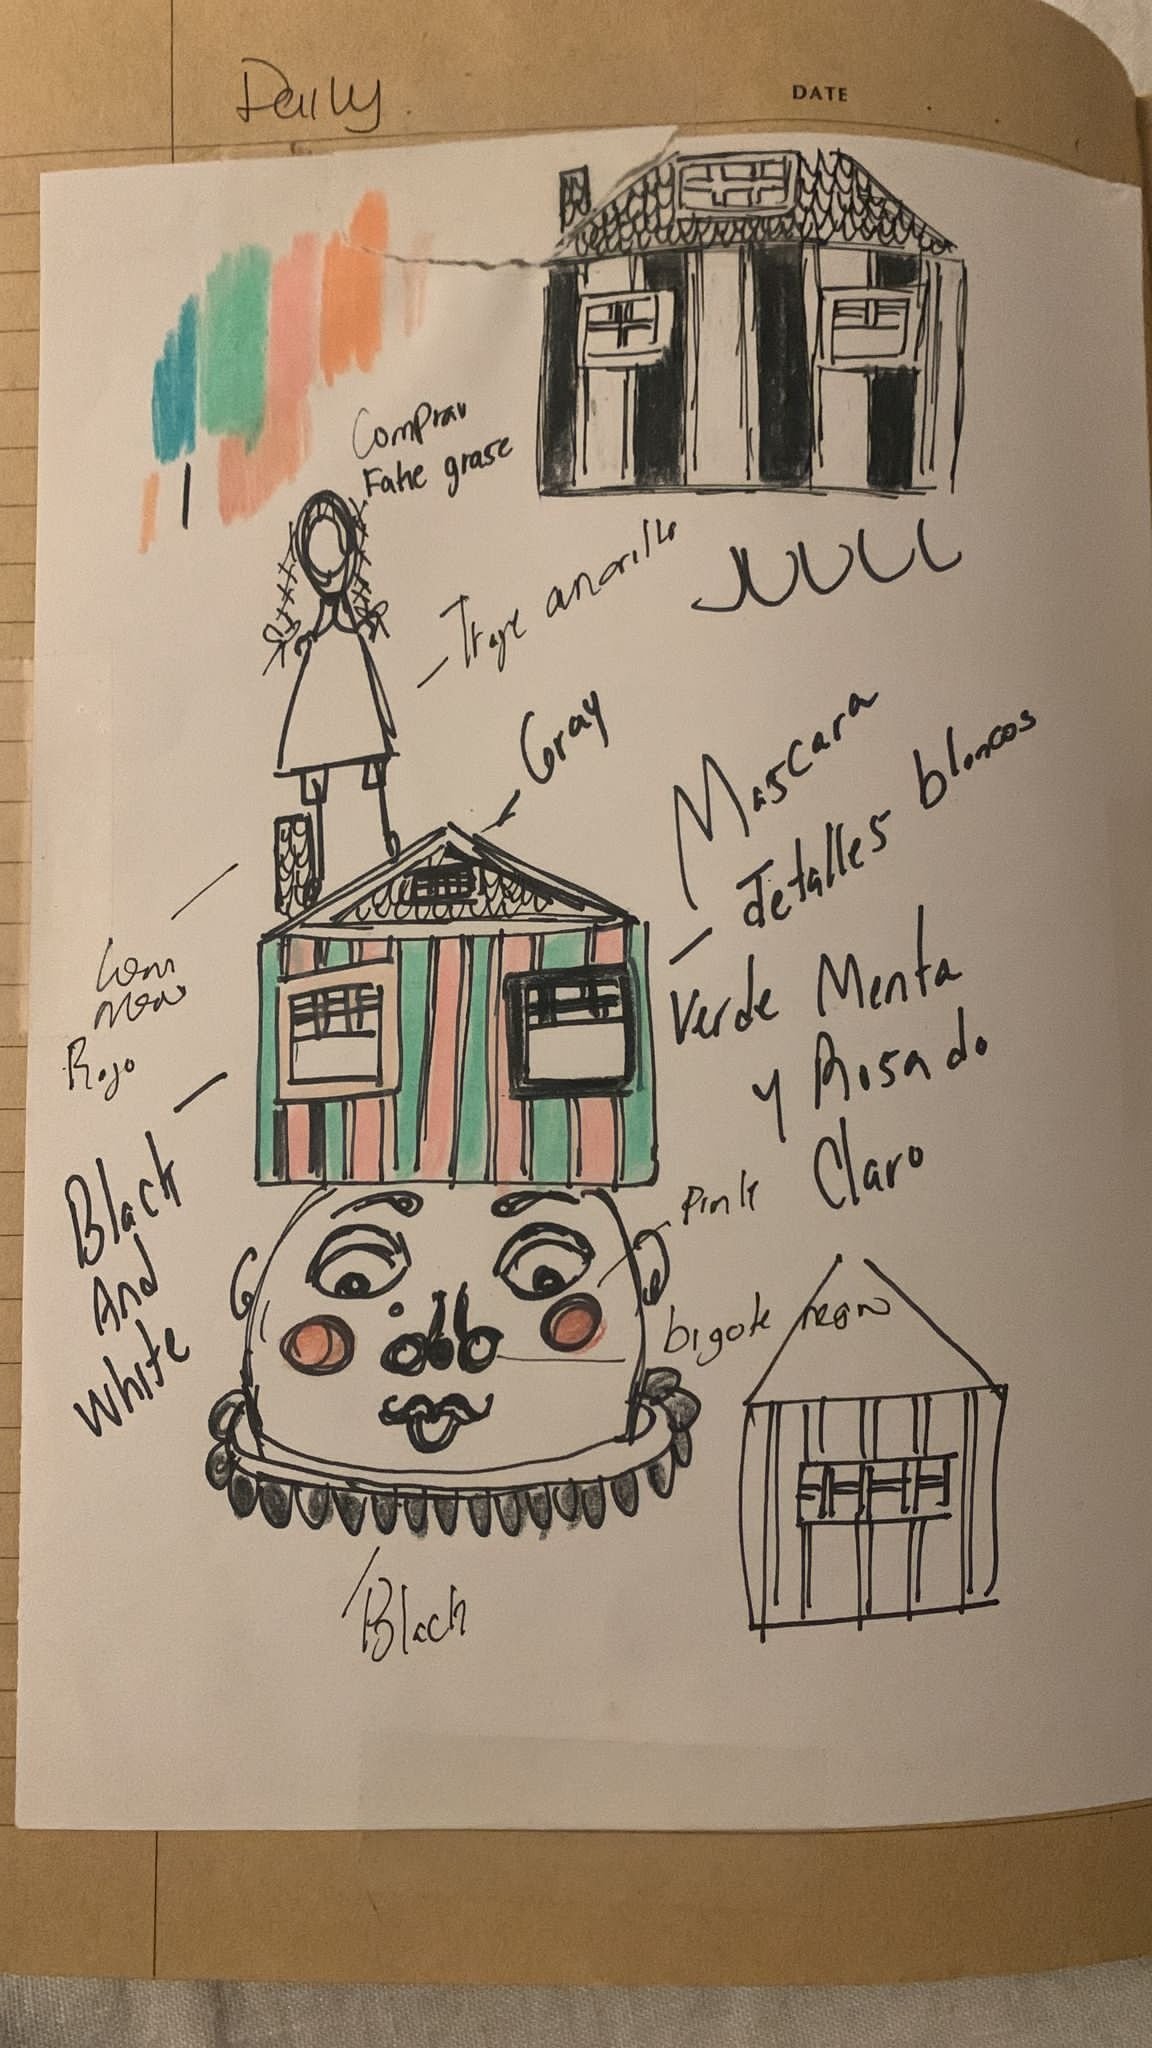 Daily
DATE
Comprar
Fake grase
Traje amarillo
Gray
Mascara
detalles blancos
Verde Menta
y Rosado
Claro
Rojo
Black
And
White
Pink
bigote
Black